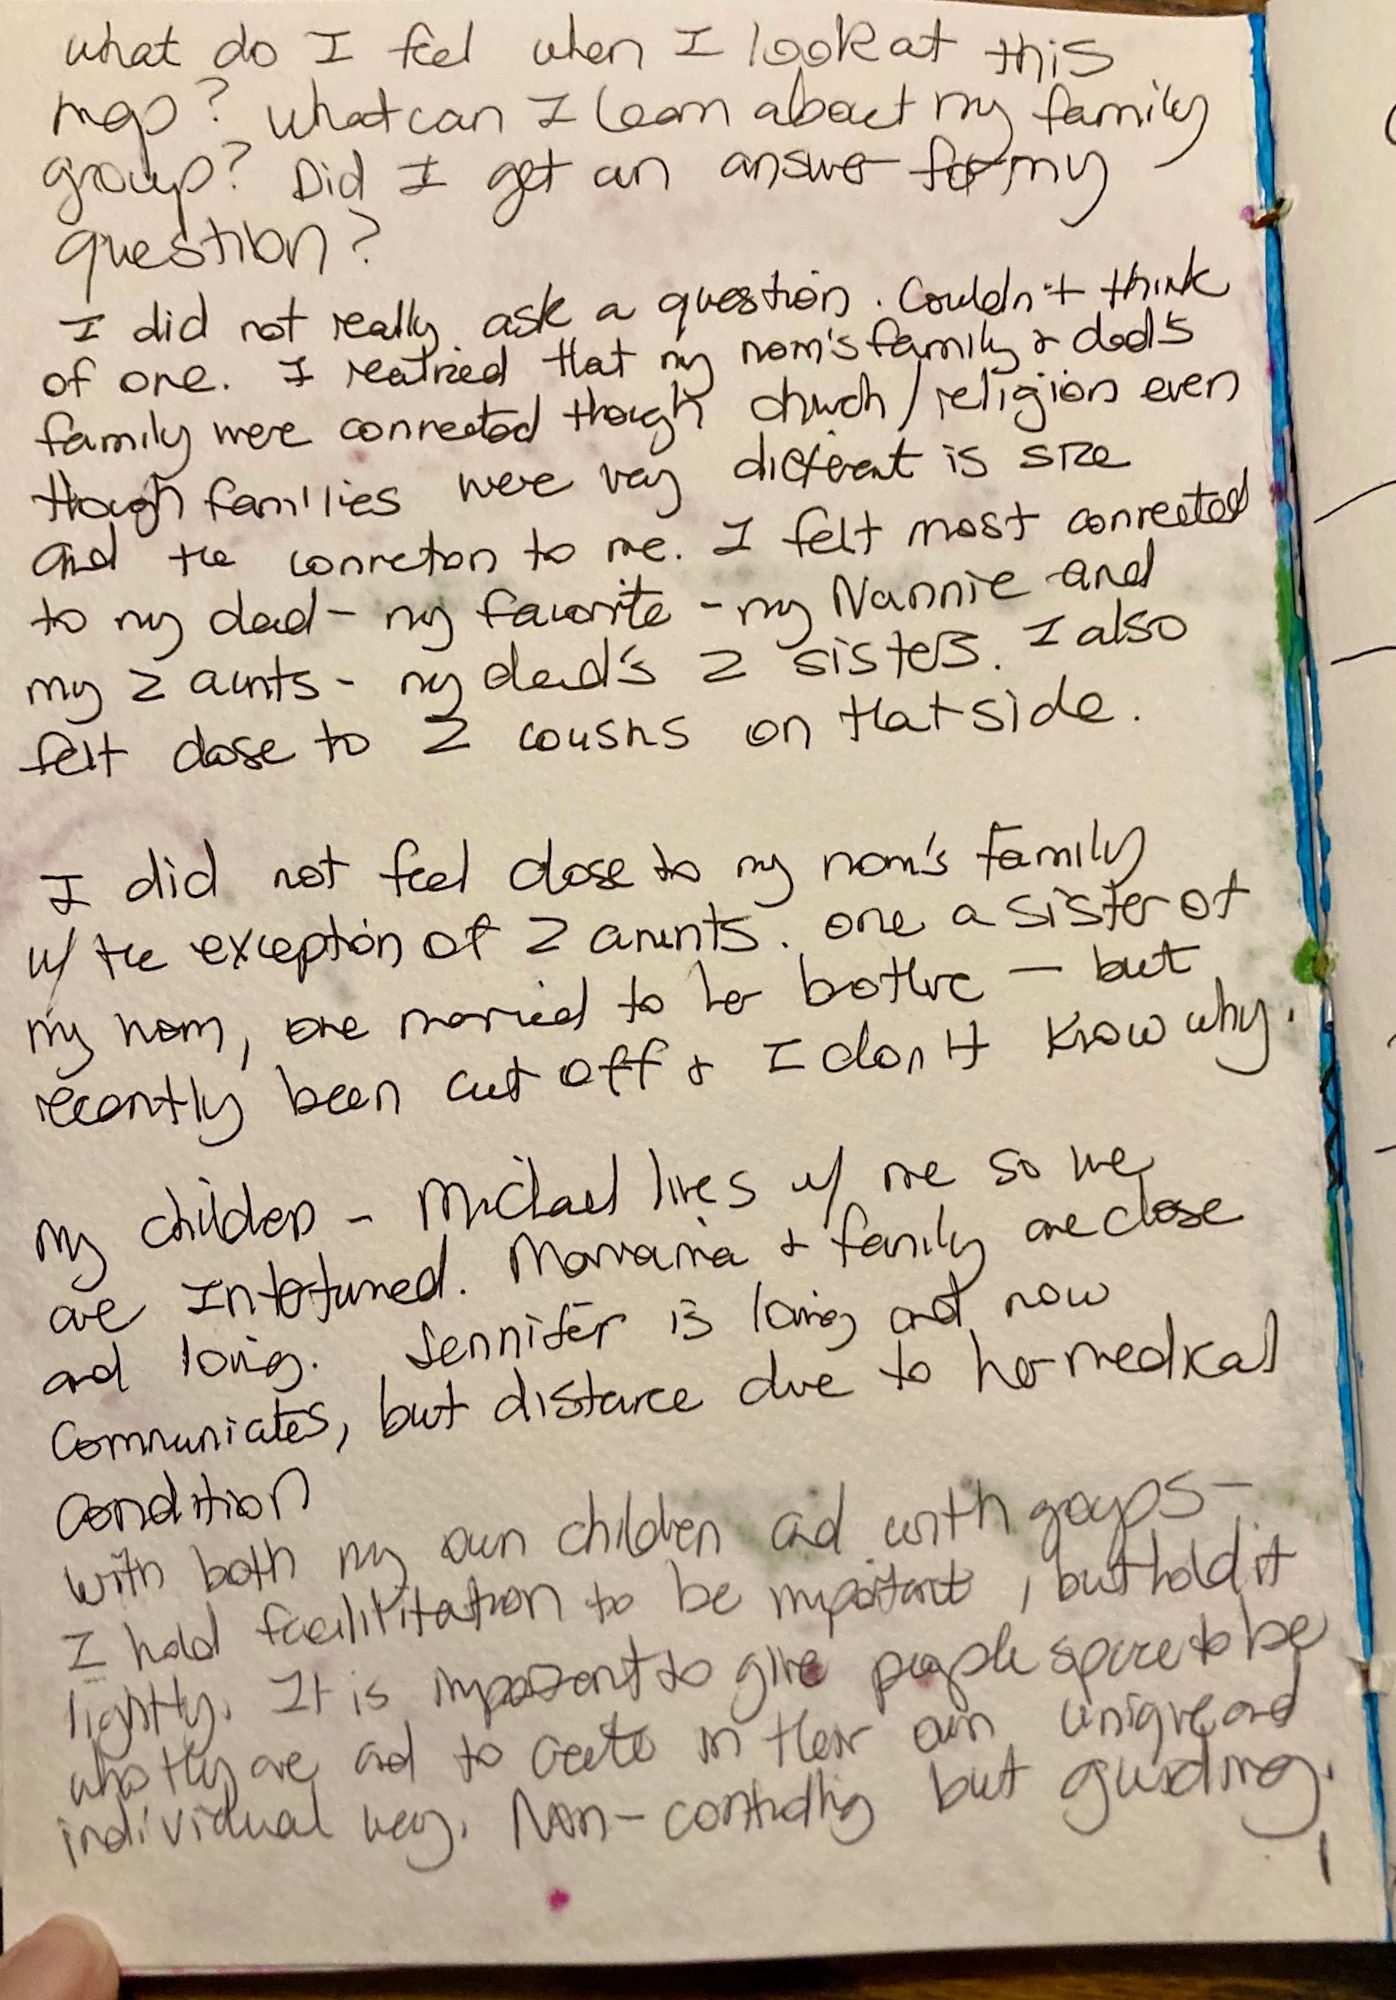 what do I feel when I look at this
map? what can I learn about my family
group? Did I get an answer for my
question?
I did not really ask a question. Couldn't think
of one. I realized that my mom's family & dad's
family were connected though church/religion even
though families were very different is size
and the connection to me. I felt most connected
to my dad - my favorite - my Nannie and
my 2 aunts - my dad's 2 sisters. I also
felt close to 2 cousins on that side.
I did not feel close to my mom's family
w/ the exception of 2 aunts. one a sister of
my mom, one married to her brother — but
recently been cut off & I don't know why.
My children - Michael lives w/ me so we
are Intertwined. & family are close
and loving. Jennifer is loving and now
communicates, but distance due to her medical
condition
with both my own children and with groups -
I hold facilitation to be important, but hold it
lightly. It is important to give people space to be
who they are and to create in their own unique and
individual way. Non-controlling but guiding.